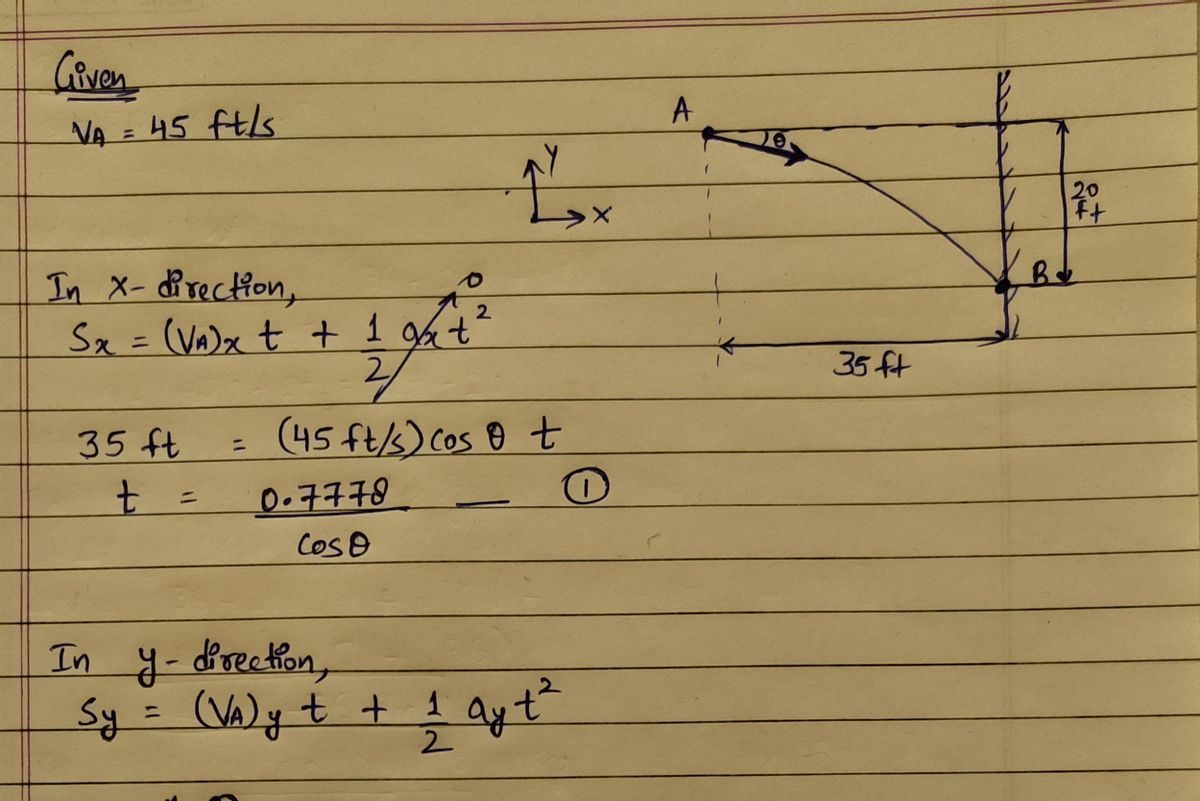 Given
VA = 45 ft/s
A
θ
Y
X
20
ft
B
In x-direction,
Sx = (VA)x t + 1/2 ax t² 0
35 ft
35 ft = (45 ft/s) cos θ t
t = 0.7778/cos θ — ①
In y-direction,
Sy = (VA)y t + 1/2 ay t²